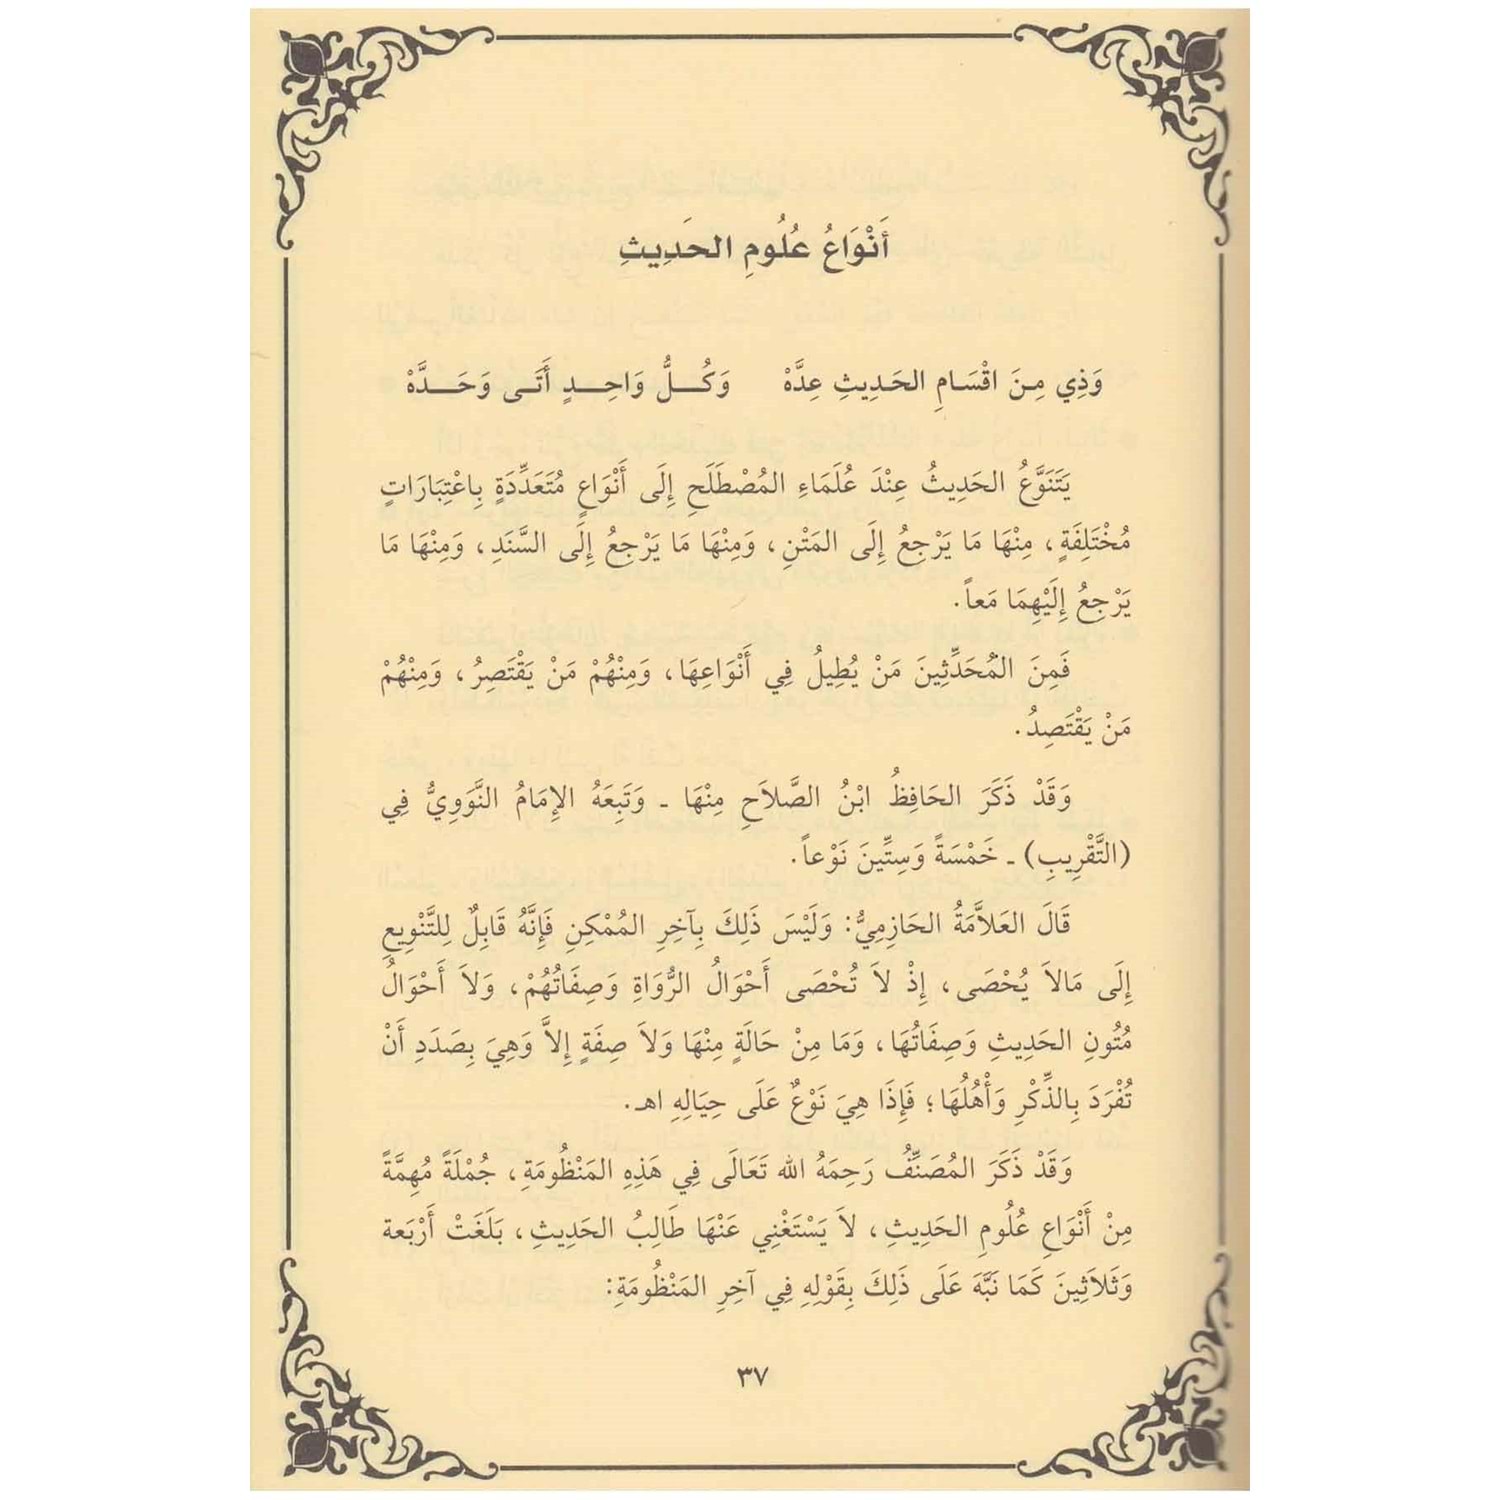 أَنْوَاعُ عُلُومِ الحَدِيثِ
وَذِي مِنَ اقْسَامِ الحَدِيثِ عِدَّهْ وَكُلُّ وَاحِدٍ أَتَى وَحَدَّهْ
يَتَنَوَّعُ الحَدِيثُ عِنْدَ عُلَمَاءِ المُصْطَلَحِ إِلَى أَنْوَاعٍ مُتَعَدِّدَةٍ بِاعْتِبَارَاتٍ
مُخْتَلِفَةٍ، مِنْهَا مَا يَرْجِعُ إِلَى المَتْنِ، وَمِنْهَا مَا يَرْجِعُ إِلَى السَّنَدِ، وَمِنْهَا مَا
يَرْجِعُ إِلَيْهِمَا مَعاً.
فَمِنَ المُحَدِّثِينَ مَنْ يُطِيلُ فِي أَنْوَاعِهَا، وَمِنْهُمْ مَنْ يَقْتَصِرُ، وَمِنْهُمْ
مَنْ يَقْتَصِدُ.
وَقَدْ ذَكَرَ الحَافِظُ ابْنُ الصَّلاَحِ مِنْهَا ـ وَتَبِعَهُ الإِمَامُ النَّوَوِيُّ فِي
(التَّقْرِيبِ) ـ خَمْسَةً وَسِتِّينَ نَوْعاً.
قَالَ العَلاَّمَةُ الحَازِمِيُّ: وَلَيْسَ ذَلِكَ بِآخِرِ المُمْكِنِ فَإِنَّهُ قَابِلٌ لِلتَّنْوِيعِ
إِلَى مَالاَ يُحْصَى، إِذْ لاَ تُحْصَى أَحْوَالُ الرُّوَاةِ وَصِفَاتُهُمْ، وَلاَ أَحْوَالُ
مُتُونِ الحَدِيثِ وَصِفَاتُهَا، وَمَا مِنْ حَالَةٍ مِنْهَا وَلاَ صِفَةٍ إِلاَّ وَهِيَ بِصَدَدِ أَنْ
تُفْرَدَ بِالذِّكْرِ وَأَهْلُهَا؛ فَإِذَا هِيَ نَوْعٌ عَلَى حِيَالِهِ اهـ.
وَقَدْ ذَكَرَ المُصَنِّفُ رَحِمَهُ الله تَعَالَى فِي هَذِهِ المَنْظُومَةِ، جُمْلَةً مُهِمَّةً
مِنْ أَنْوَاعِ عُلُومِ الحَدِيثِ، لاَ يَسْتَغْنِي عَنْهَا طَالِبُ الحَدِيثِ، بَلَغَتْ أَرْبَعَة
وَثَلاَثِينَ كَمَا نَبَّهَ عَلَى ذَلِكَ بِقَوْلِهِ فِي آخِرِ المَنْظُومَةِ:
٣٧